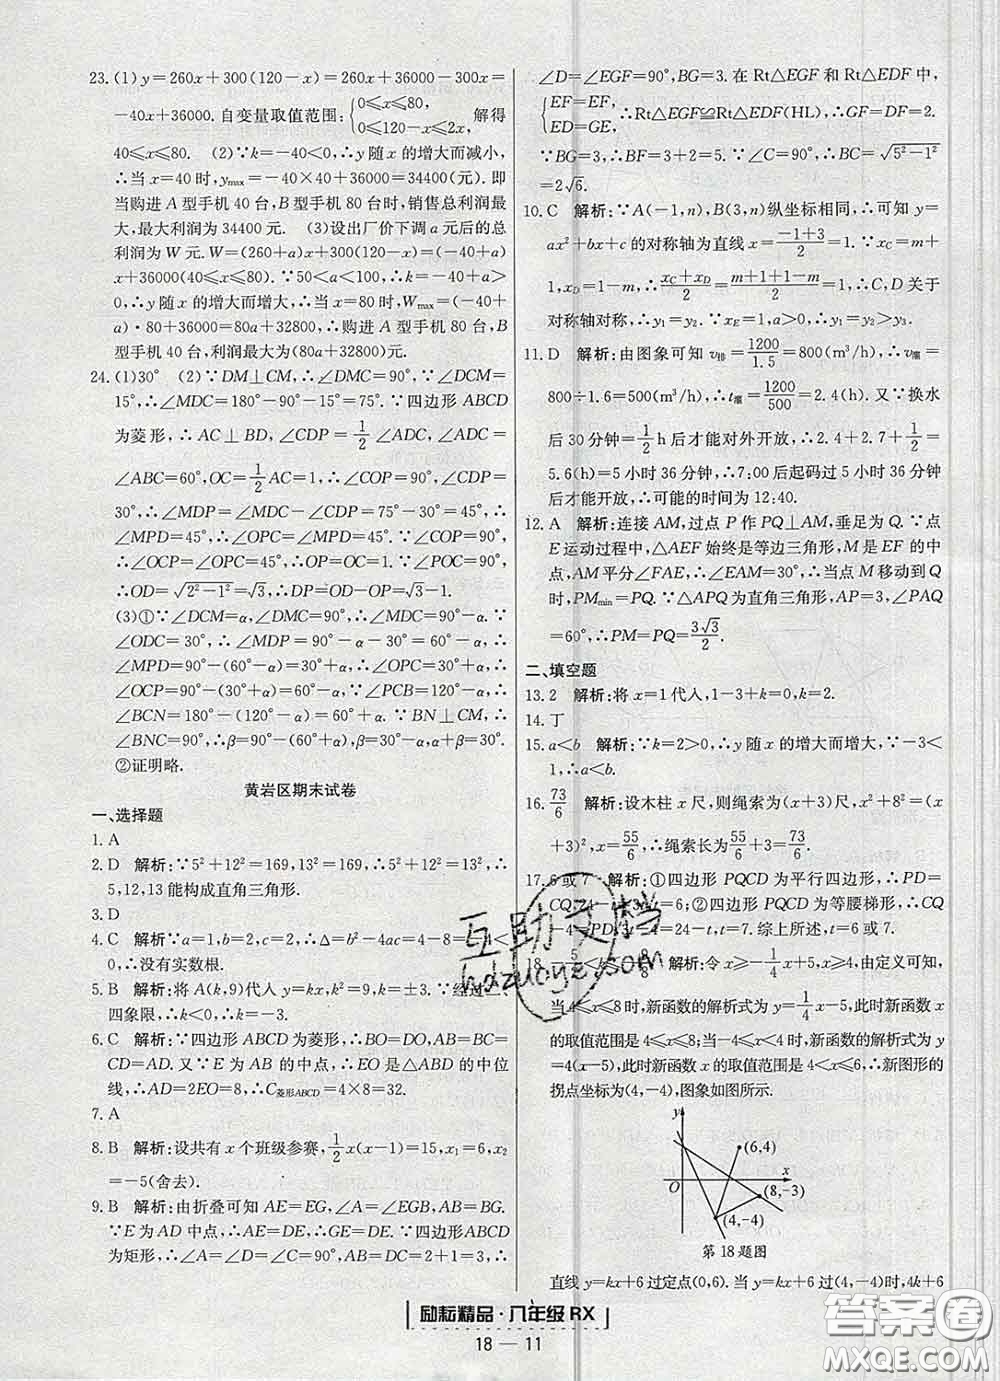 23. (1) y=260x+300(120-x)=260x+36000-300x=
-40x+36000. 自变量取值范围:{0≤x≤80, 0≤120-x≤2x, 解得
40≤x≤80. (2)∵k=-40<0,∴y随x的增大而减小,
∴当x=40时,ymax=-40×40+36000=34400(元). 即
当购进A型手机40台,B型手机80台时,销售总利润最
大,最大利润为34400元. (3)设出厂价下调a元后的总
利润为W元. W=(260+a)x+300(120-x)=(-40+a)
x+36000(40≤x≤80). ∵50<a<100,∴k=-40+a>
0,∴y随x的增大而增大,∴当x=80时,Wmax=(-40+
a)·80+36000=80a+32800,∴购进A型手机80台,B
型手机40台,利润最大为(80a+32800)元.
24. (1)30° (2)∵DM⊥CM,∴∠DMC=90°,∵∠DCM=
15°,∴∠MDC=180°-90°-15°=75°. ∵四边形ABCD
为菱形,∴AC⊥BD,∠CDP=1/2∠ADC,∠ADC=
∠ABC=60°,OC=1/2AC=1,∴∠ADP=∠CDP=
30°,∴∠MDP=∠MDC-∠CDP=75°-30°=45°,
∴∠MPD=45°,∴∠OPC=∠MPD=45°. ∵∠COP=90°,
∴∠OCP=∠OPC=45°,∴OP=OC=1. ∵∠POC=90°,
∴OD=√(2²-1²)=√3,∴DP=OD-OP=√3-1.
(3)①∵∠DCM=α,∠DMC=90°,∴∠MDC=90°-α. ∵
∠ODC=30°,∴∠MDP=90°-α-30°=60°-α,∴
∠MPD=90°-(60°-α)=30°+α,∴∠OPC=30°+α,∴
∠OCP=90°-(30°+α)=60°-α. ∵∠PCB=120°-α,∴
∠BCN=180°-(120°-α)=60°+α. ∵BN⊥CM,∴
∠BNC=90°,∴β=90°-(60°+α)=30°-α,∴α+β=30°.
②证明略.
黄岩区期末试卷
一、选择题
1. A
2. D 解析:∵5²+12²=169,13²=169,∴5²+12²=13²,∴
5,12,13能构成直角三角形.
3. D
4. C 解析:∵a=1,b=2,c=2,∴Δ=b²-4ac=4-8=-4<
0,∴没有实数根.
5. B 解析:将A(k,9)代入y=kx,k²=9,k=±3. ∵经过二、
四象限,∴k<0,∴k=-3.
6. C 解析:∵四边形ABCD为菱形,∴AB=AD=BC=
CD=AD. 又∵E为AB的中点,∴OE是△ABD的中位
线,∴AD=2EO=8,∴C菱形ABCD=4×8=32.
7. A
8. B 解析:设共有x个班级参赛,1/2x(x-1)=15,x₁=6,x₂
=-5(舍去).
9. B 解析:由折叠可知AE=EG,AB=BG,∠A=∠BGE.
∵E为AD中点,∴AE=DE,∴GE=DE. ∵四边形ABCD
为矩形,∴∠A=∠D=∠C=90°,∴DC=2+1=3,∴
∠D=∠EGF=90°,BG=3. 在Rt△EGF和Rt△EDF中,
{EF=EF, ED=GE, ∴Rt△EGF≌Rt△EDF(HL),∴GF=DF=2.
∵BG=3,∴BF=3+2=5. ∵∠C=90°,∴BC=√(5²-1²)
=2√6.
10. C 解析:∵A(-1,n),B(3,n)纵坐标相同,∴可知y=
ax²+bx+c的对称轴为直线x=(-1+3)/2=1. ∵xC=m+
1,xD=1-m,∴(xC+xD)/2=(m+1+1-m)/2=1,∴C,D关于
对称轴对称,∴y₁=y₂. ∵xE=1,a>0,∴y₁=y₂>y₃.
11. D 解析:由图象可知v排=1200/1.5=800(m³/h),∴v灌=
800÷1.6=500(m³/h),∴t灌=1200/500=2.4(h). 又∵换水
后30分钟=1/2h后才能对外开放,∴2.4+2.7+1/2=
5.6(h)=5小时36分钟,∴7:00后起码过5小时36分钟
后才能开放,∴可能的时间为12:40.
12. A 解析:连接AM,过点P作PQ⊥AM,垂足为Q. ∵点
E运动过程中,△AEF始终是等边三角形,M是EF的中
点,AM平分∠FAE,∴∠EAM=30°,∴当点M移动到Q
时,PMmin=PQ. ∵△APQ为直角三角形,AP=3,∠PAQ
=60°,∴PM=PQ=3√3/2.
二、填空题
13. 2 解析:将x=1代入,1-3+k=0,k=2.
14. 丁
15. a<b 解析:∵k=2>0,∴y随x的增大而增大,∵-3<
1,∴a<b.
16. 73/6 解析:设木柱x尺,则绳索为(x+3)尺,x²+8²=(x
+3)²,∴x=55/6,∴绳索长为55/6+3=73/6.
17. 6或7 解析:①四边形PQCD为平行四边形,∴PD=
CQ,24-t=3t,t=6;②四边形PQCD为等腰梯形,∴CQ
-4=PD,3t-4=24-t,t=7. 综上所述,t=6或7.
18. 解析:令x≥-1/4x+5,由定义可知,
当4≤x≤8时,新函数的解析式为y=1/4x-5,此时新函数x
的取值范围是4≤x≤8;当-4≤x<4时,新函数的解析式为y
=4(x-5),此时新函数x的取值范围是4<x≤8,∴新图形的
拐点坐标为(4,-4),图象如图所示.
y
(6,4)
x
(8,-3)
(4,-4)
第18题图
直线y=kx+6过定点(0,6). 当y=kx+6过(4,-4)时,k+6
励耘精品·八年级RX
18 — 11
互助文档
hdzuoye.com
答案圈
MXQE.COM